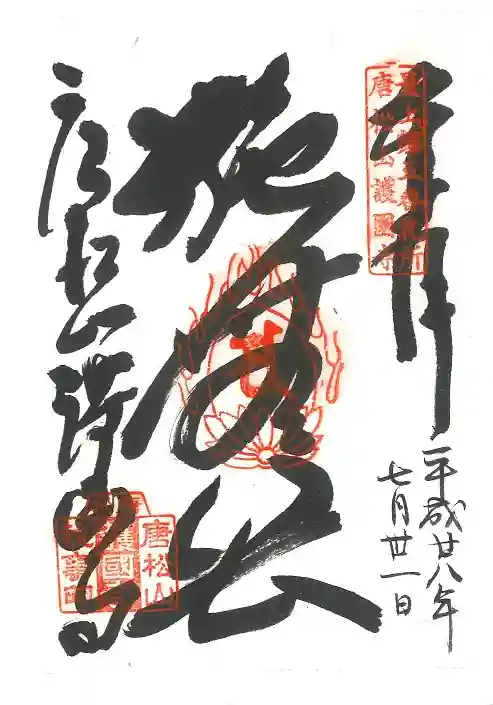 奉拝
最上第五番札所
唐松山護國寺
平成廿八年
七月卅一日
施無畏
唐松山護国寺
唐松山
護國寺